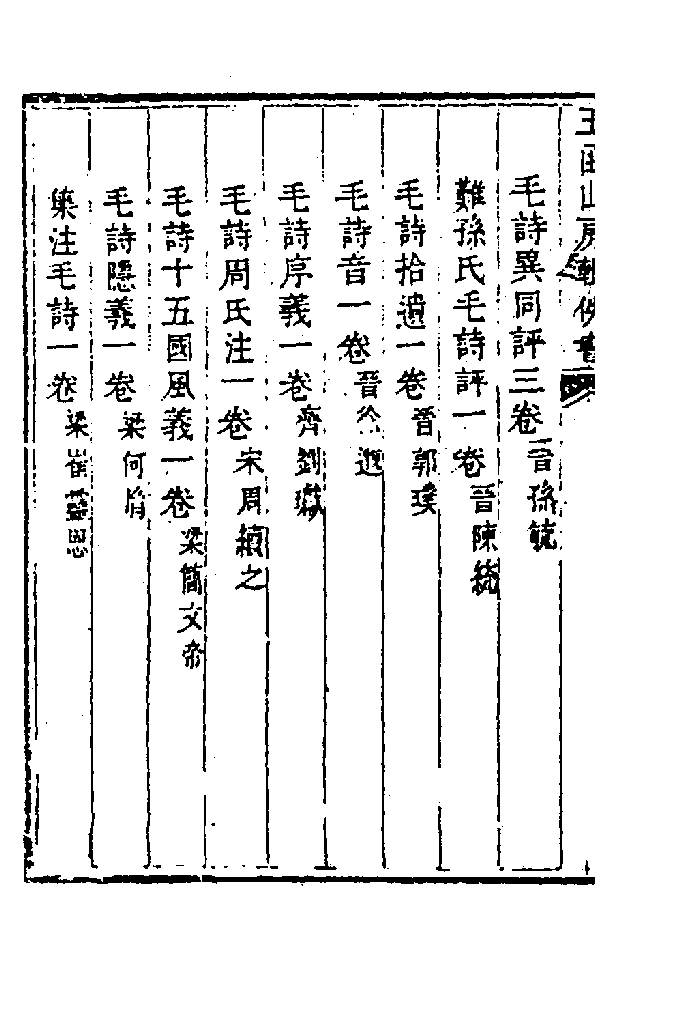 玉函山房輯佚書
毛詩異同評三卷 晉孫毓
難孫氏毛詩評一卷 晉陳統
毛詩拾遺一卷 晉郭璞
毛詩音一卷 晉徐邈
毛詩序義一卷 齊劉瓛
毛詩周氏注一卷 宋周續之
毛詩十五國風義一卷 梁簡文帝
毛詩隱義一卷 梁何胤
集注毛詩一卷 梁崔靈恩